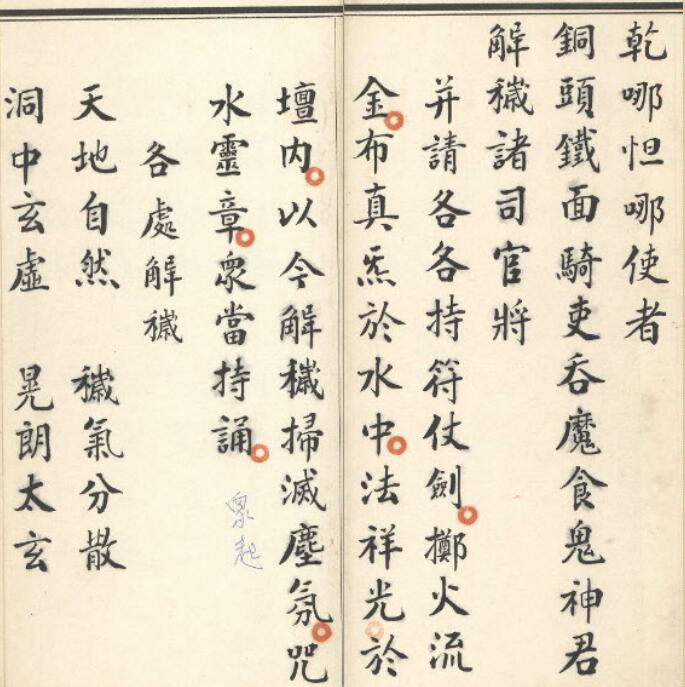 乾哪怛哪使者
銅頭鐵面騎吏吞魔食鬼神君
解穢諸司官將
并請各各持符仗劍擲火流
金布真炁於水中法祥光於
壇内以今解穢掃滅塵氛咒
水靈章衆當持誦
衆起
各處解穢
天地自然　穢氣分散
洞中玄虛　晃朗太玄